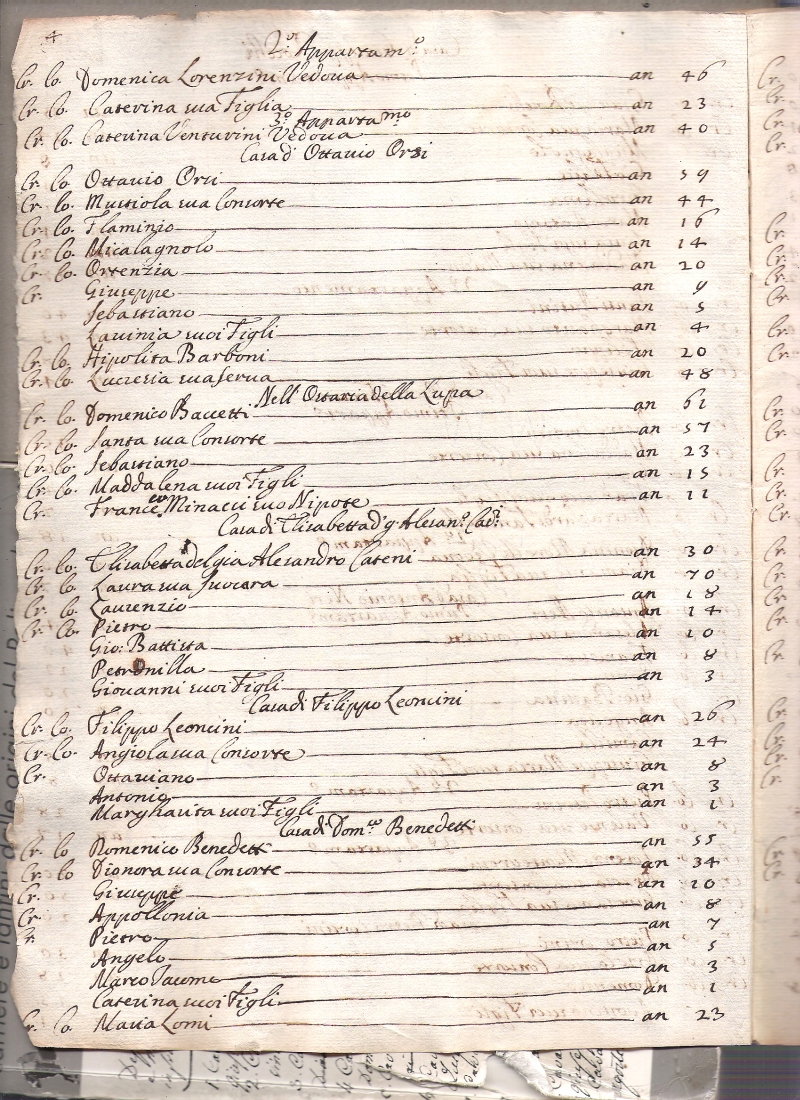 4
2.° Appartam.°
Cr. Co. Domenica Lorenzini Vedoua an 46
Cr. Co. Caterina sua Figlia an 23
3.° Appartamo
Cr. Co. Caterina Venturini Vedoua an 40
Casa d' Ottauio Orsi
Cr. Co. Ottauio Orsi an 59
Cr. Co. Mustiola sua Consorte an 44
Cr. Co. Flaminio an 16
Cr. Co. Micalagnolo an 14
Cr. Co. Ortenzia an 20
Cr. Giuseppe an 9
Sebastiano an 5
Lauinia suoi Figli an 4
Cr. Co. Hipolita Barboni an 20
Cr. Co. Lucresia sua serua an 48
Nell' Ostaria della Lupa
Cr. Co. Domenico Baccetti an 61
Cr. Co. Santa sua Consorte an 57
Cr. Co. Sebastiano an 23
Cr. Co. Maddalena suoi Figli an 15
Cr. Franc.co Minacci suo Nipote an 11
Casa di Elisabetta d' q Alesan.° Cat.i
Cr. Co. Elisabetta del gia Alesandro Cateni an 30
Cr. Co. Laura sua Suocera an 70
Cr. Co. Laurenzio an 18
Cr. Co. Pietro an 14
Gio: Battista an 10
Petronilla an 8
Giouanni suoi Figli an 3
Casa di Filippo Leoncini
Cr. Co. Filippo Leoncini an 26
Cr. Co. Angiola sua Consorte an 24
Cr. Ottauiano an 8
Antonio an 3
Margharita suoi Figli an 1
Casa di Dom.co Benedetti
Cr. Co Domenico Benedetti an 55
Cr. Co Dionora sua Consorte an 34
Cr. Giuseppe an 10
Cr. Appollonia an 8
Cr. Pietro an 7
Angelo an 5
Marco Iacomo an 3
Caterina suoi Figli an 1
Cr. Co. Maria Lomi an 23